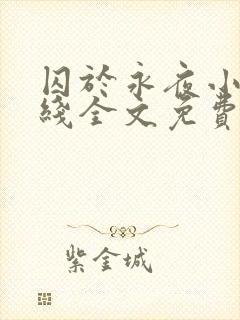 囚於永夜小
綫全文免費
紫金城